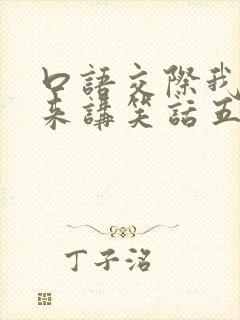 口語交際我
來講笑話五
丁子洺